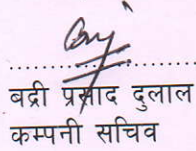 बद्री प्रसाद दुलाल
कम्पनी सचिव